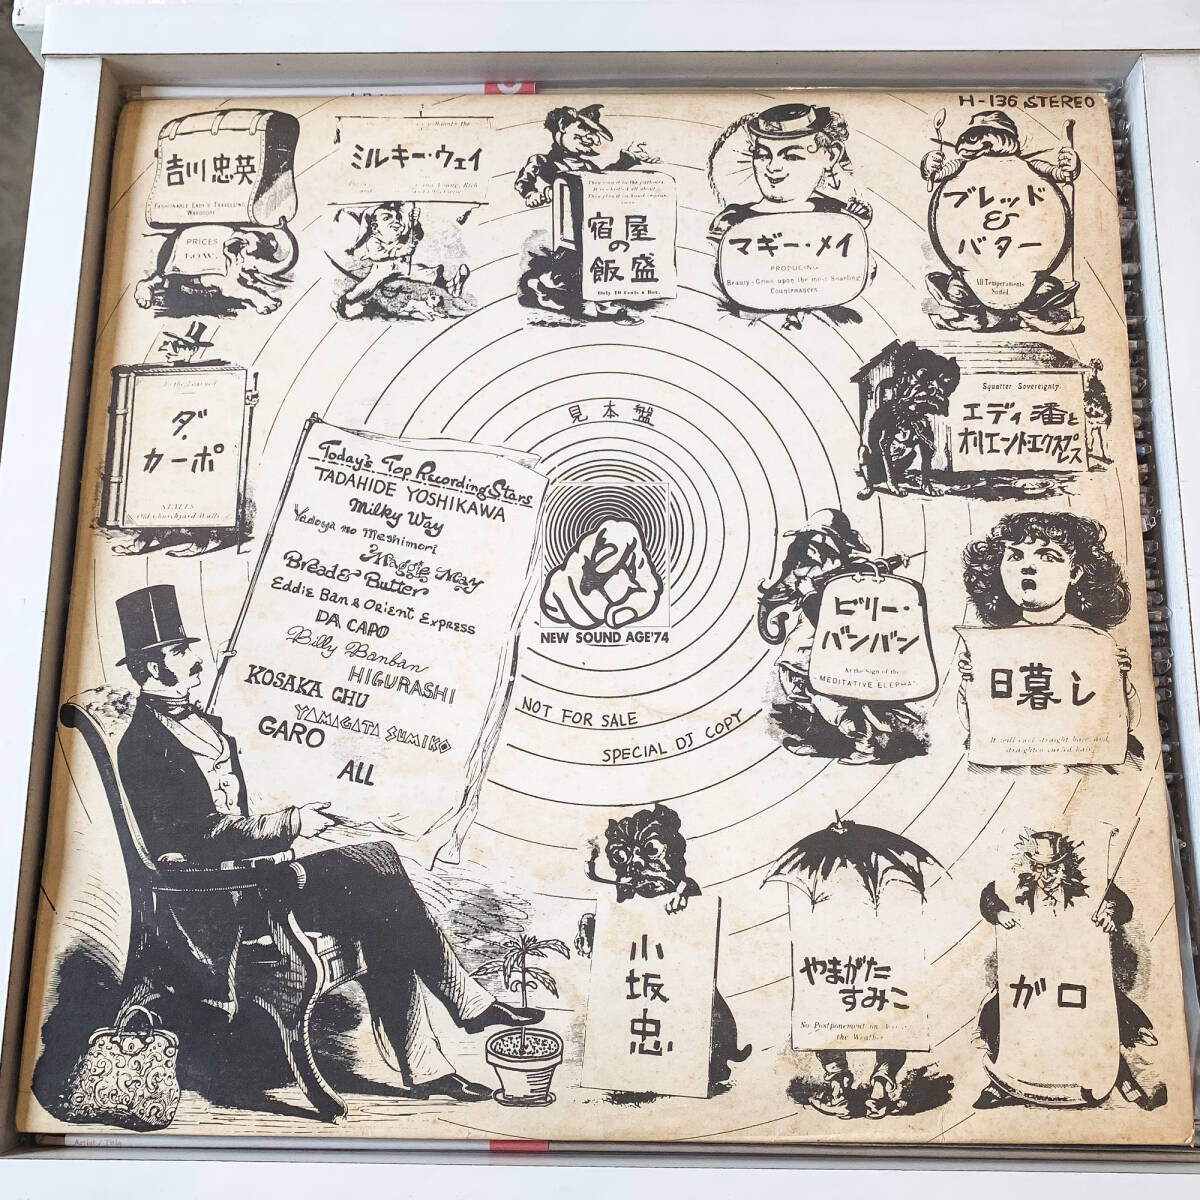 H-136 STEREO
吉川忠英
FASHIONABLE LADY'S TRAVELLING
WARDROBE
PRICES
LOW.
ミルキー・ウェイ
宿屋
の
飯盛
Only 10 Cents a Box.
マギー・メイ
PRODUCING
Beauty-Grins upon the most Snarling
Countenances
ブレッド
&
バター
All Temperaments
Suited
ダ・
カーポ
To the Learned
STALLS
Old Churchyard Walls
Squatter Sovereignty
エディ潘と
オリエント・エクスプレス
見本盤
Today's Top Recording Stars
TADAHIDE YOSHIKAWA
Milky Way
Yadoya no Meshimori
Maggie May
Bread & Butter
Eddie Ban & Orient Express
DA CAPO
Billy Banban
HIGURASHI
KOSAKA CHU
YAMAGATA SUMIKO
GARO
ALL
NEW SOUND AGE'74
NOT FOR SALE
SPECIAL DJ COPY
ビリー・
バンバン
At the Sign of the
MEDITATIVE ELEPHA
日暮し
It will curl straight hair, and
straighten curled hair
小坂忠
やまがた
すみこ
No Postponement on
the Weather
ガロ
Artist / Title